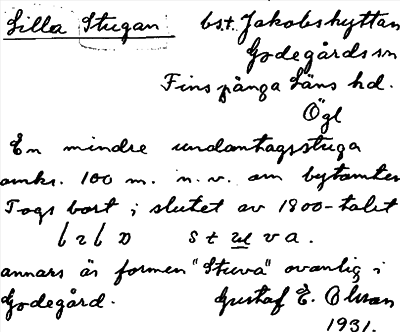 Lilla Stugan bst. Jakobshyttan
Godegårds sn
Finspånga Läns hd.
Ögl
En mindre undantagsstuga
omkr. 100 m. n.v. om bytomten
Togs bort i slutet av 1800-talet
st u va.
annars är formen "Stuva" ovanlig i
Godegård. Gustaf E. Olsson
1931.